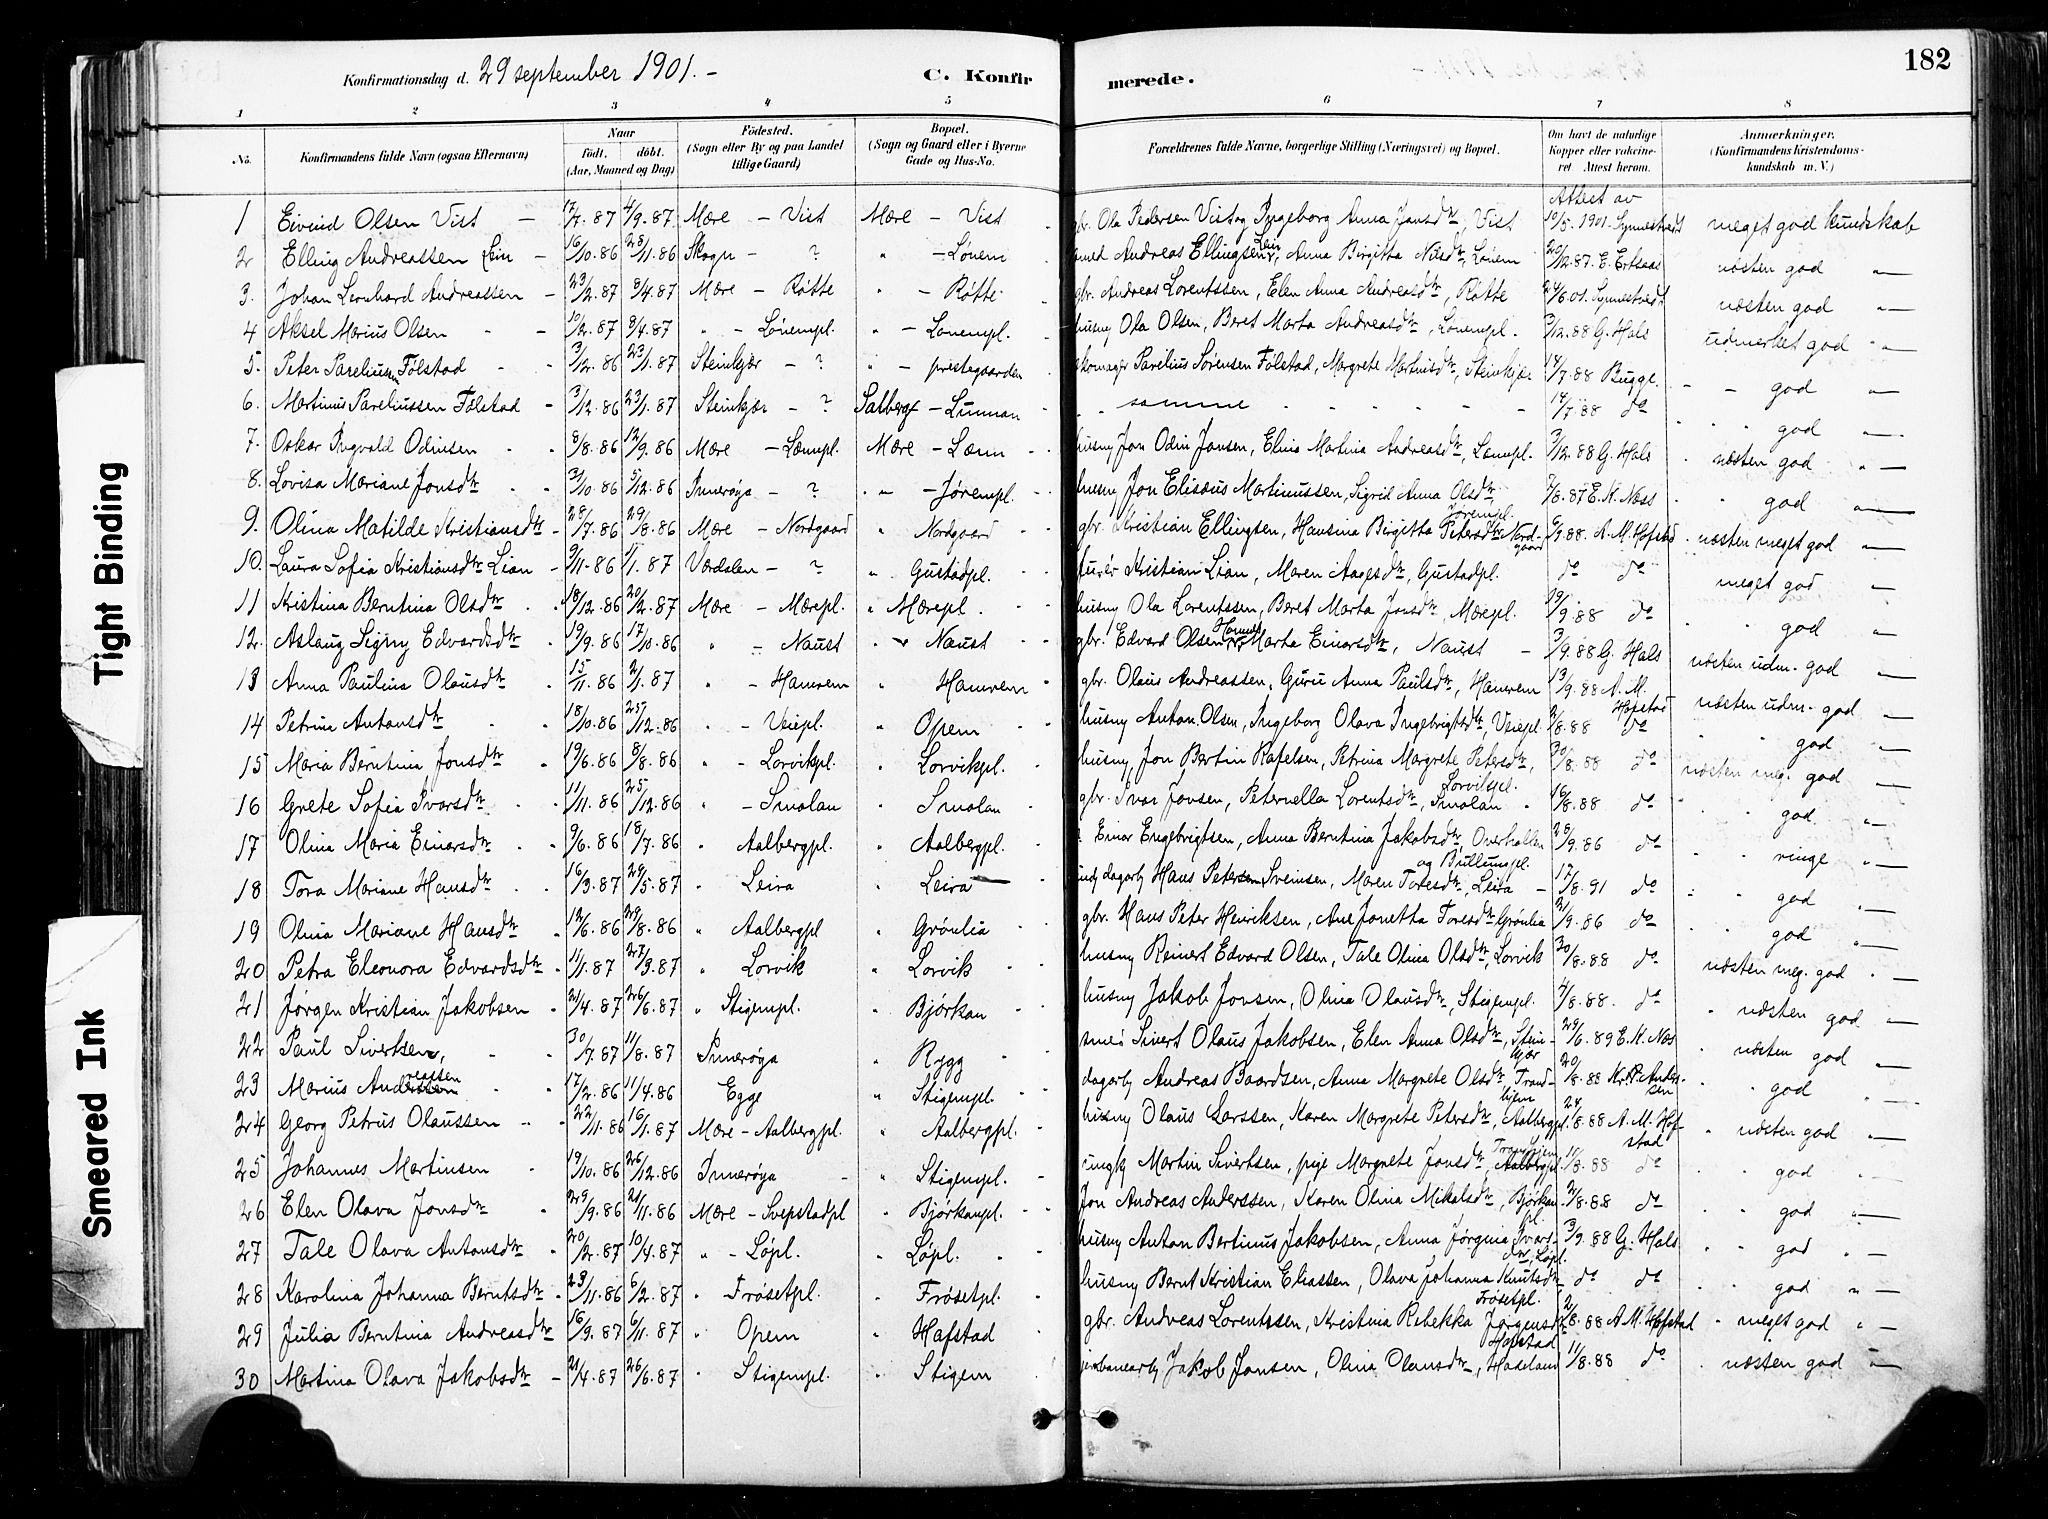 182
Konfirmationsdag d. 29 september 1901. -
C. Konfirmerede.
1 2 3 4 5 6 7 8
No. Konfirmandens fulde Navn (ogsaa Efternavn) Naar født. døbt. (Aar, Maaned og Dag) Födested. (Sogn eller By og paa Landet tillige Gaard) Bopæl. (Sogn og Gaard eller i Byerne Gade og Hus-No. Forældrenes fulde Navne, borgerlige Stilling (Næringsvei) og Bopæl. Om havt de naturlige Kopper eller vaccineret Attest herom. Anmærkninger. (Konfirmandens Kristendomskundskab m. V.)
Attest av
1 Eivind Olsen Vist - 87 4/9.87 Mære - Vist Mære - Vist gbr. Ola Pedersen Vist og Ingeborg Anna Jonsdtr, Vist 10/5.1901. Synnestvedt meget god kundskab
2 Elling Andreassen Lein - 16/10.86 28/11.86 Skogn - ? " - Lønem Andreas Ellingsen Lein, Anna Birgitta Nilsdtr, Lønem 20/12.87. E. næsten god "
3. Johan Leonhard Andreassen - 23/2.87 8/4.87 Mære - Røtte " - Røtte gbr. Andreas Lorentssen, Elen Anna Andreasdtr, Røtte 24/6.01. Synnestvedt næsten god "
4 Aksel Marius Olsen - 10/2.87 8/4.87 " - Lønempl. " - Lønempl. husmy Ola Olsen, Beret Marta Andreasdtr, Lønempl. 3/12.88 G. Hals udmerket god "
5. Peter Pareliussen Følstad - 3/12.86 23/1.87 Steinkjær - ? " - prestegaarden skomager Parelius Sørensen Følstad, Margrete Martinsdtr, Steinkjær 14/7.88 Bugge. god "
6. Martinus Pareliussen Følstad - 3/12.86 23/1.87 Steinkjær - ? Salberg - Lunnan samme 14/7.88 do god "
7. Oskar Ingvald Odinsen 8/8.86 12/9.86 Mære - Læmpl. Mære - Læin husmy Jon Odin Jonsen, Elina Martina Andreasdtr, Læmpl. 3/12.88 G. Hals næsten god "
8. Lovisa Mariane Jonsdtr 3/10.86 5/12.86 Inderøya - ? " - Jørempl. husmy Jon Elisæus Martinussen, Sigrid Anna Olsdtr Jørempl. 7/8.87 E. K. Næss god "
9. Olina Matilde Kristiansdtr - 28/7.86 29/8.86 Mære - Nordgaard " Nordgaard gbr. Kristian Ellingsen, Hansina Birgitta Petersdtr Nordgaard 6/9.88. A. M. Hofstad næsten meget god "
10. Laura Sofia Kristiansdtr Lian - 9/11.86 1/1.87 Værdalen - ? " Gustadpl. furér Kristian Lian, Maren Aagesdtr, Gustadpl. do do meget god "
11 Kristina Berntina Olsdtr 18/12.86 20/2.87 Mære - Mærepl. " Mærepl. husmy Ola Lorentssen, Beret Marta Jonsdtr, Mærepl. 19/9.88 do god "
12. Aslaug Signy Edvardsdtr 19/9.86 17/10.86 " - Naust " Naust gbr. Edvard Olsen, Marta Einarsdtr, Naust 3/9.88 G. Hals næsten udm. god "
13 Anna Paulina Olausdtr 15/11.86 2/1.87 " - Hamrem " Hamrem gbr. Olaus Andreassen, Guru Anna Paulsdtr, Hamrem 13/9.88 A. M. Hofstad næsten udm. god "
14 Petrina Antonsdtr 18/10.86 25/12.86 " - Veiepl. " Opem husmy Anton Olsen, Ingeborg Olava Ingebrigtsdtr, Veiepl. 2/8.88 do god "
15 Maria Berntina Jonsdtr 19/6.86 8/8.86 " - Lorvikpl. " Lorvikpl. husmy Jon Bertin Rafelsen, Petrina Margrete Petersdtr, Lorvikpl. 30/8.88 do næsten meg. god "
16 Grete Sofia Ivarsdtr 11/11.86 25/12.86 " - Smolan " Smolan gbr. Ivar Jonsen, Peternella Lorentsdtr, Smolan 16/8.88 do god "
17 Olina Maria Einarsdtr 9/6.86 18/7.86 " Aalbergpl. " Aalbergpl. Einar Engebrigtsen, Anna Berntina Jakobsdtr, Overhallen og Bullungpl. 28/9.86 do ringe "
18 Tora Mariane Hansdtr 16/3.87 29/5.87 " Leira " Leira dagarb Hans Petersen Sveinsen, Maren Toresdtr, Leira - 17/8.91 do god "
19 Olina Mariane Hansdtr 12/6.86 29/8.86 " Aalbergpl " Grønlia gbr. Hans Peter Henriksen, Ane Jonetta Toresdtr Grønlia 21/9.86 do god "
20 Petra Eleonora Edvardsdtr 11/1.87 27/3.87 " Lorvik " Lorvik husmy Reinert Edvard Olsen, Tale Olina Olsdtr, Lorvik 30/8.88 do næsten meg. god "
21 Jørgen Kristian Jakobsen 21/4.87 26/6.87 " Stigempl. " Bjørkan husmy Jakob Jonsen, Olina Olausdtr, Stigempl. 4/8.88. do næsten god "
22 Paul Sivertsen, 30/7.87 11/8.87 Inderøya " Rygg smed Sivert Olaus Jakobsen, Elen Anna Olsdtr, Steinkjær 29/6.89 E. K. Næs næsten god "
23 Marius Andreassen 17/2.86 11/4.86 Egge " Stigempl. dagarb Andreas Baardsen, Anna Margrete Olsdtr Trondhjem 20/8.88 Kr. P. Anderssen god "
24 Georg Petrus Olaussen 22/11.86 16/1.87 Mære - Aalbergpl. " Aalbergpl. husmy Olaus Larssen, Karen Margrete Petersdtr, Aalbergpl. 24/8.88 A. M. Hofstad næsten god "
25 Johannes Martinsen 19/10.86 26/12.86 Inderøya " Stigempl. ungk Martin Sivertsen, pige Margrete Jonsdtr, Aalbergpl. 11/8.88 do god "
26 Elen Olava Jonsdtr 29/9.86 21/11.86 Mære - Svepstadpl " Bjørkanpl. Jon Andreas Anderssen, Karen Olina Mikalsdtr, Bjørkanpl. 2/8.88 do god "
27 Tale Olava Antonsdtr 20/2.87 10/4.87 " - Løpl. " Løpl. husmy Anton Bertinus Jakobsen, Anna Jørgina Ivarsdtr, Løpl. 3/9.88 G. Hals god "
28 Karolina Johanna Berntsdtr 23/11.86 6/2.87 " Frøsetpl. " Frøsetpl. husmy Bernt Kristian Eliassen, Olava Johanna Knutsdtr, Frøsetpl. do do god "
29 Julia Berntina Andreasdtr 16/9.87 6/11.87 " Opem " Hafstad gbr. Andreas Lorentssen, Kristina Rebekka Jørgensdtr Hafstad 2/8.88 A. M. Hofstad meget god "
30 Martina Olava Jakobsdtr - 21/4.87 26/6.87 " Stigempl. " Stigem jernbanearb Jakob Jonsen, Olina Olausdtr, 11/8.88 do næsten god "
Tight Binding
Smeared Ink